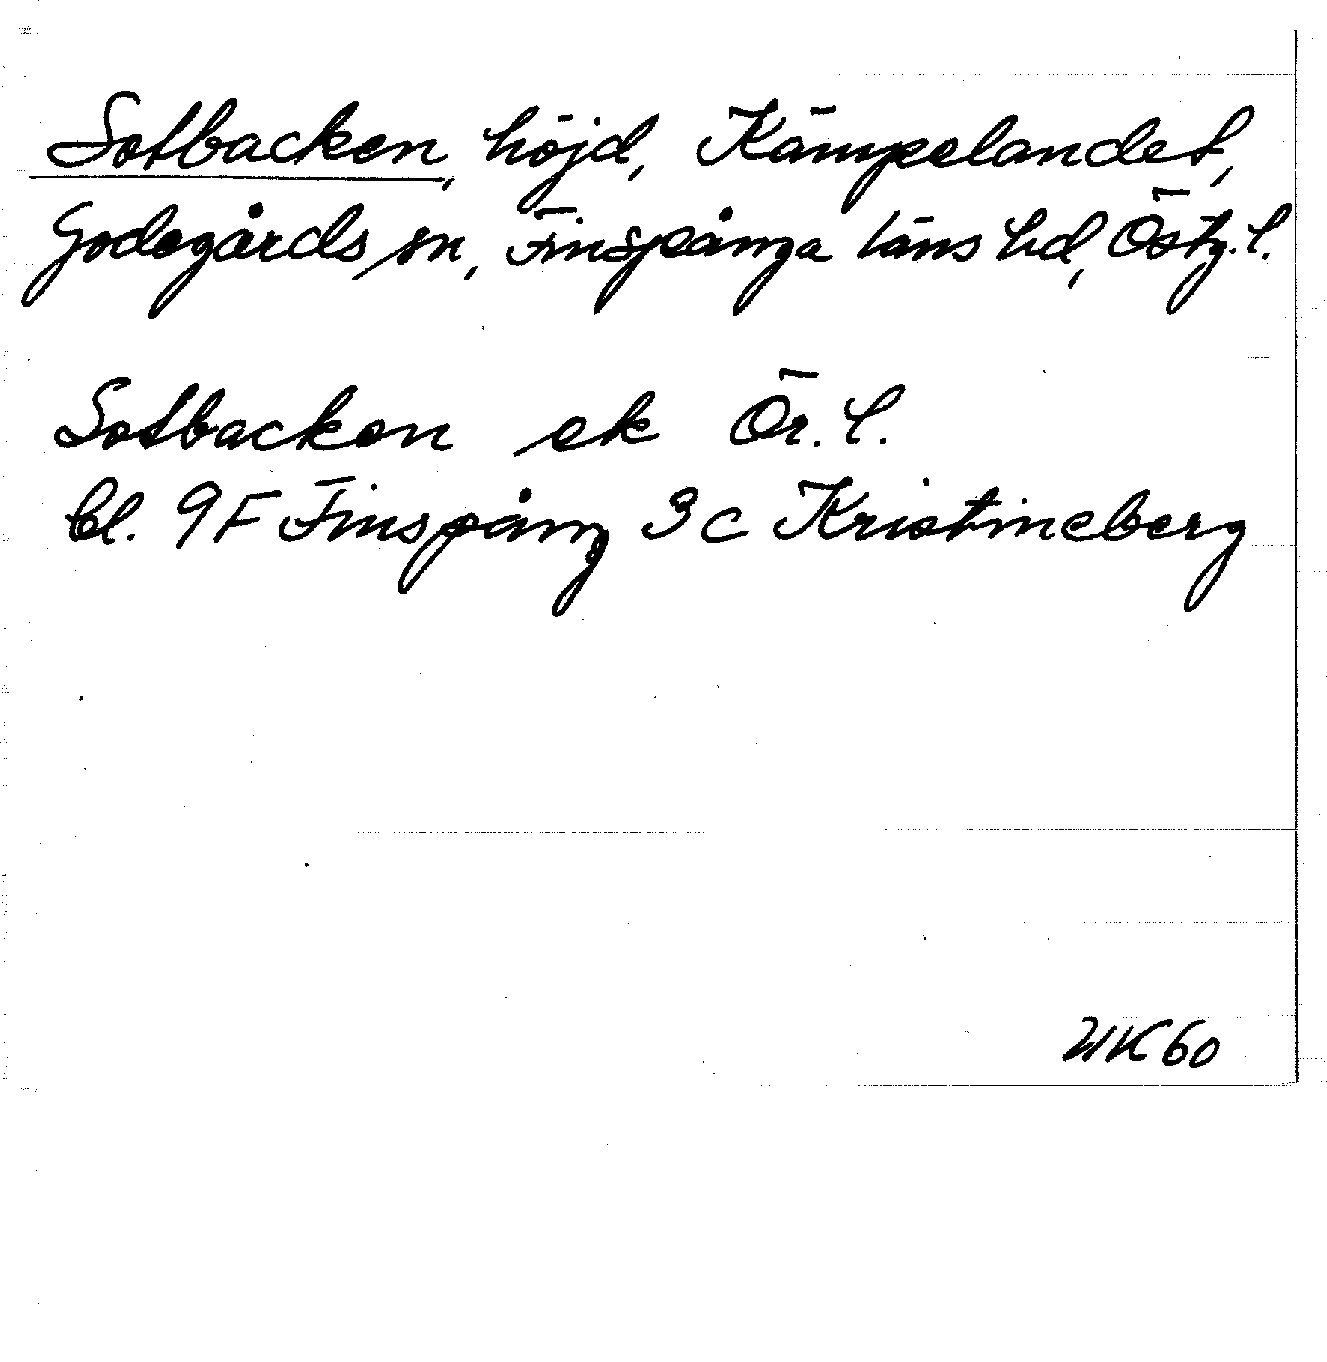 Sotbacken, höjd, Kämpelandet,
Godegårds sn, Finspånga läns hd, Östg. l.
Sotbacken ek Ör. l.
bl. 9F Finspång 3c Kristineberg
WK 60